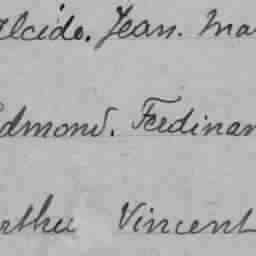 Alcide. Jean. Ma
Edmond. Ferdinan
rthur Vincent